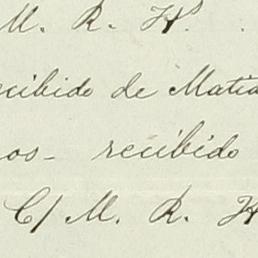 M. R. Hs.
cibido de Matia
os- recibido
C/ M. R. H